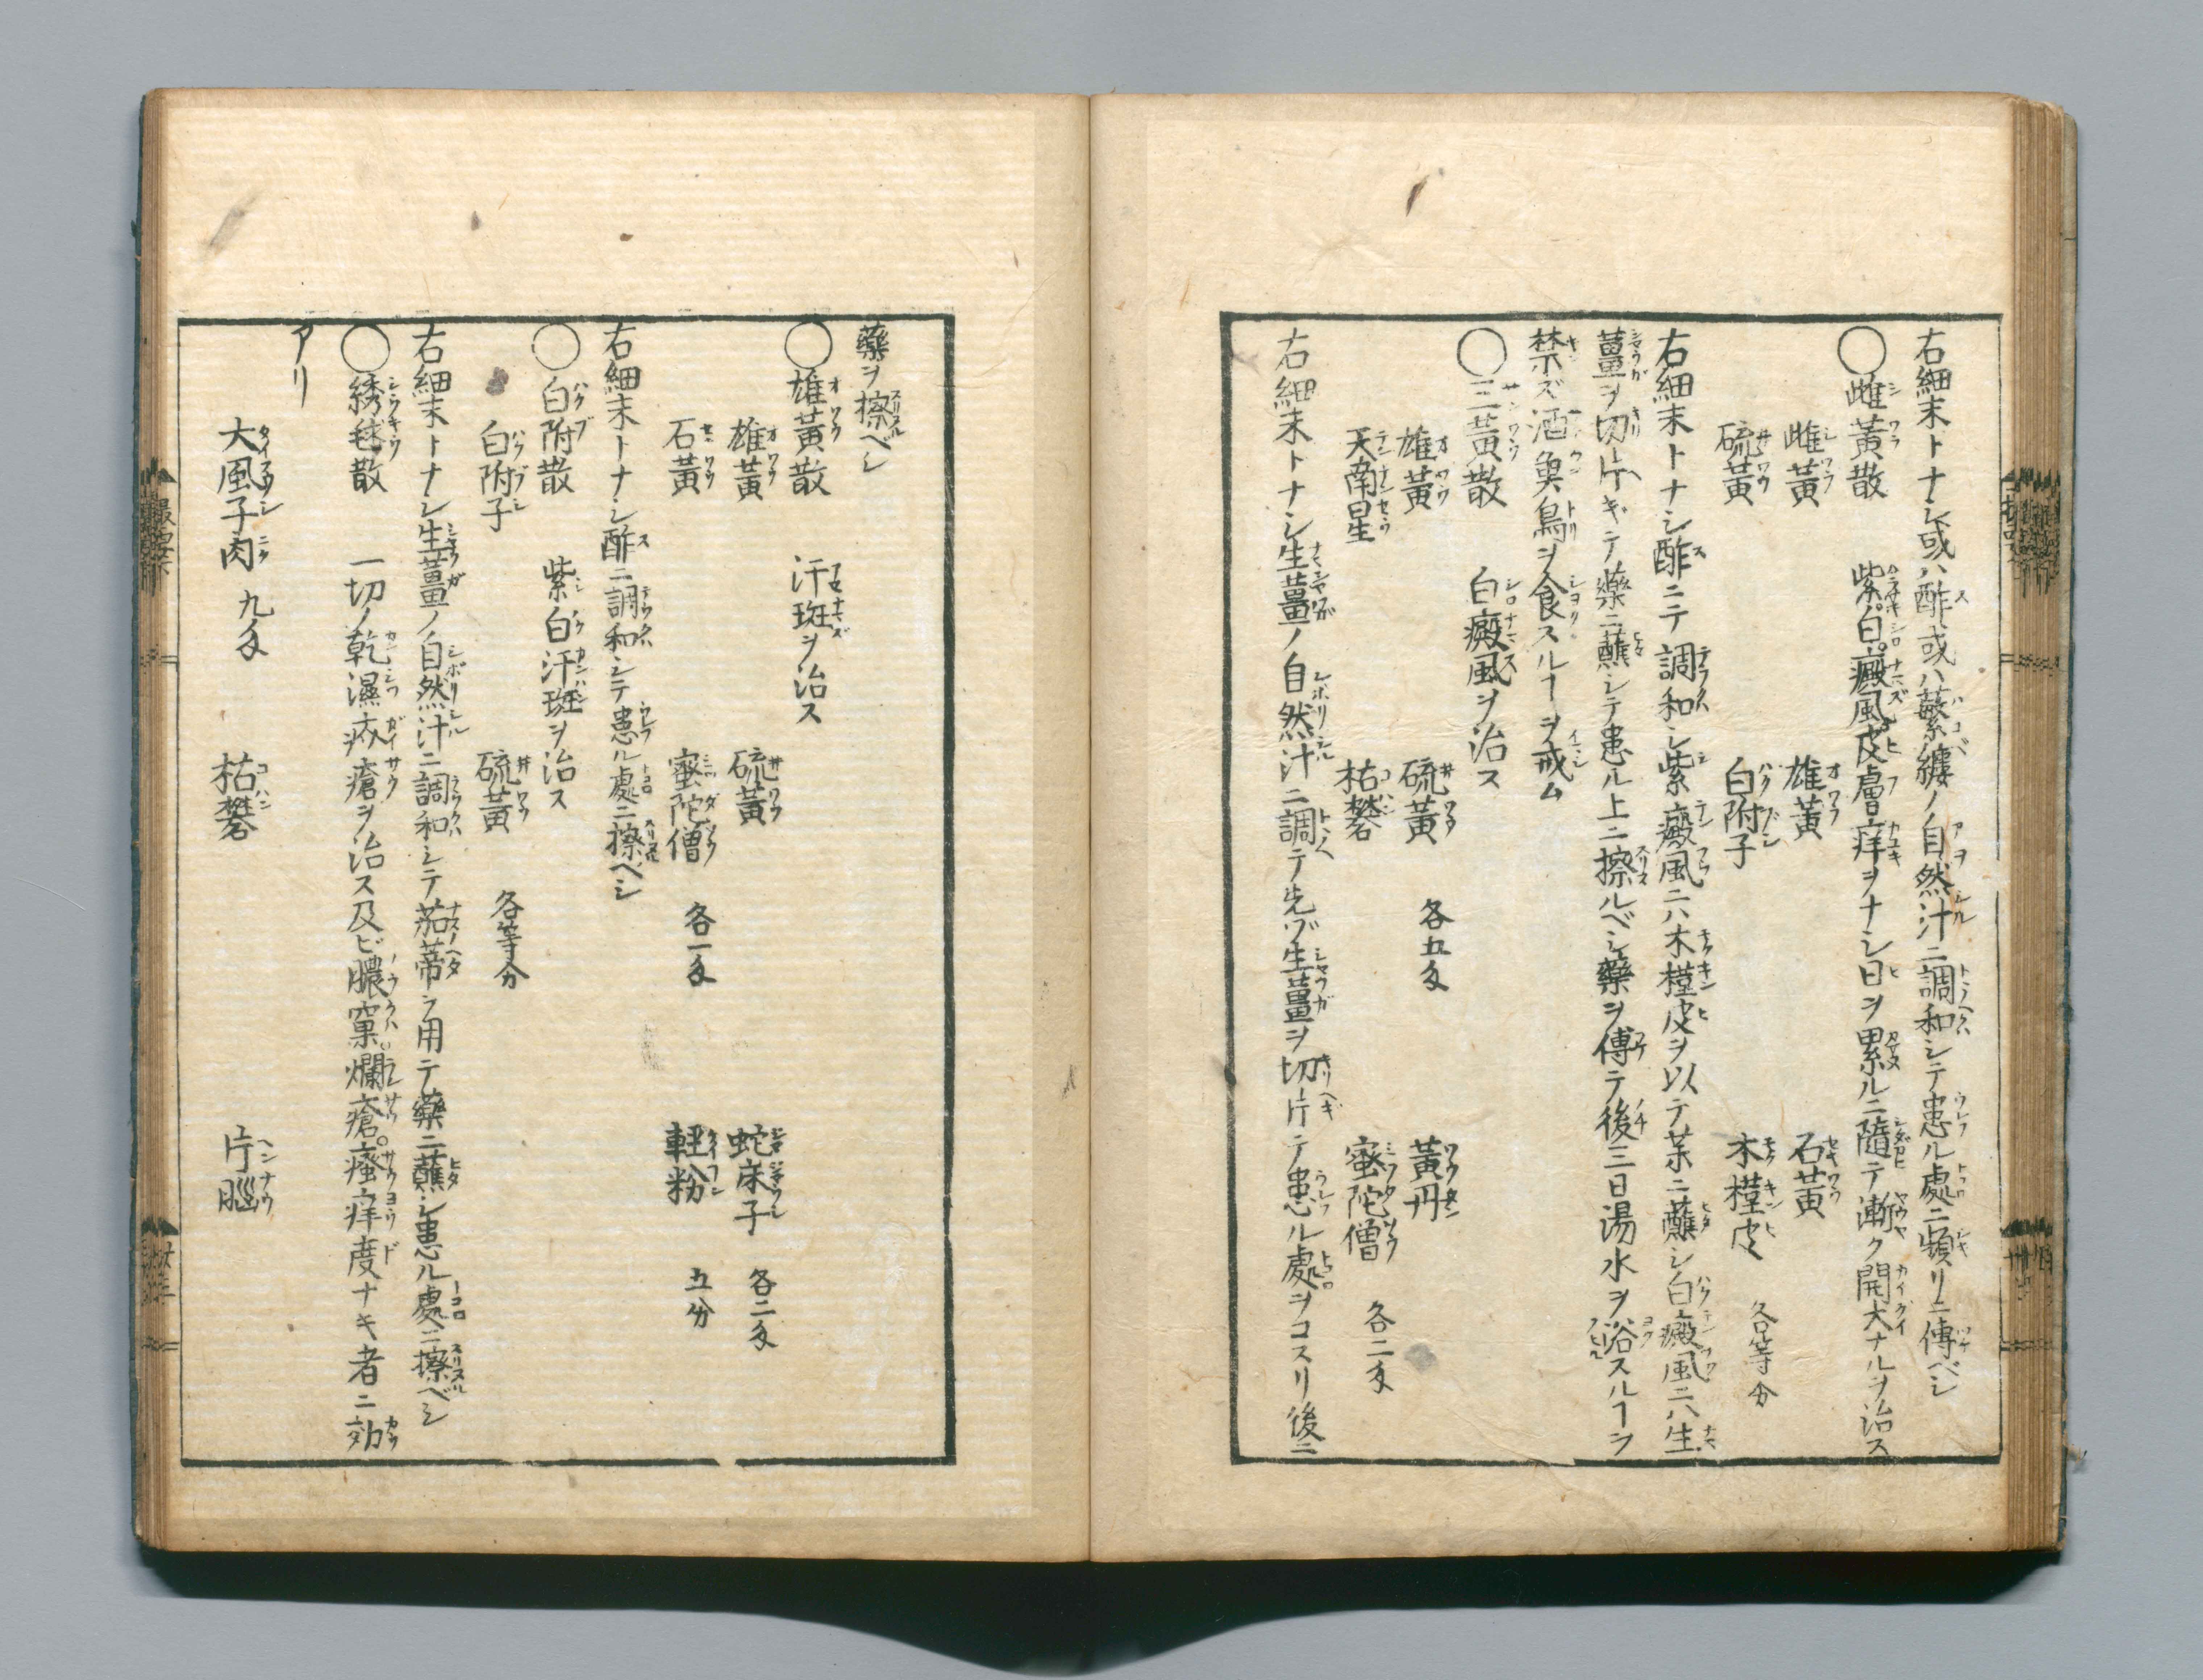 右細末トナシ或ハ酢或ハ蘩縷ノ自然汁ニ調和シテ患ル處ニ頻リニ傳ベシ
○雌黃散　紫白癜風皮膚痒ヲナシ日ヲ累ルニ隨テ漸ク開大ナルヲ治ス
雌黃　雄黃　石黃
硫黃　白附子　木槿皮　各等分
右細末トナシ酢ニテ調和シ紫癜風ニハ木槿皮ヲ以テ茱ニ蘸シ白癜風ニハ生
薑ヲ切片ギテ藥ニ蘸シテ患ル上ニ擦ルベシ藥ヲ傳テ後三日湯水ヲ浴スルヿヲ
禁ズ酒魚鳥ヲ食スルヿヲ戒ム
○三黃散　白癜風ヲ治ス
雄黃　硫黃　各五匁　黃丹
天南星　枯礬　蜜陀僧　各二匁
右細末トナシ生薑ノ自然汁ニ調テ先ヅ生薑ヲ切片テ患ル處ヲコスリ後ニ
藥ヲ擦ベシ
○雄黃散　汗斑ヲ治ス
雄黃　硫黃　蛇床子　各二匁
石黃　蜜陀僧　各一匁　軽粉　五分
右細末トナシ酢ニ調和シテ患ル處ニ擦ベシ
○白附散　紫白汗斑ヲ治ス
白附子　硫黃　各等分
右細末トナシ生薑ノ自然汁ニ調和シテ茄蒂ヲ用テ藥ニ蘸シ患ル處ニ擦ベシ
○綉毬散　一切ノ乾濕疥瘡ヲ治ス及ビ膿窠爛瘡瘙痒度ナキ者ニ効
アリ
大風子肉　九匁　枯礬　片腦